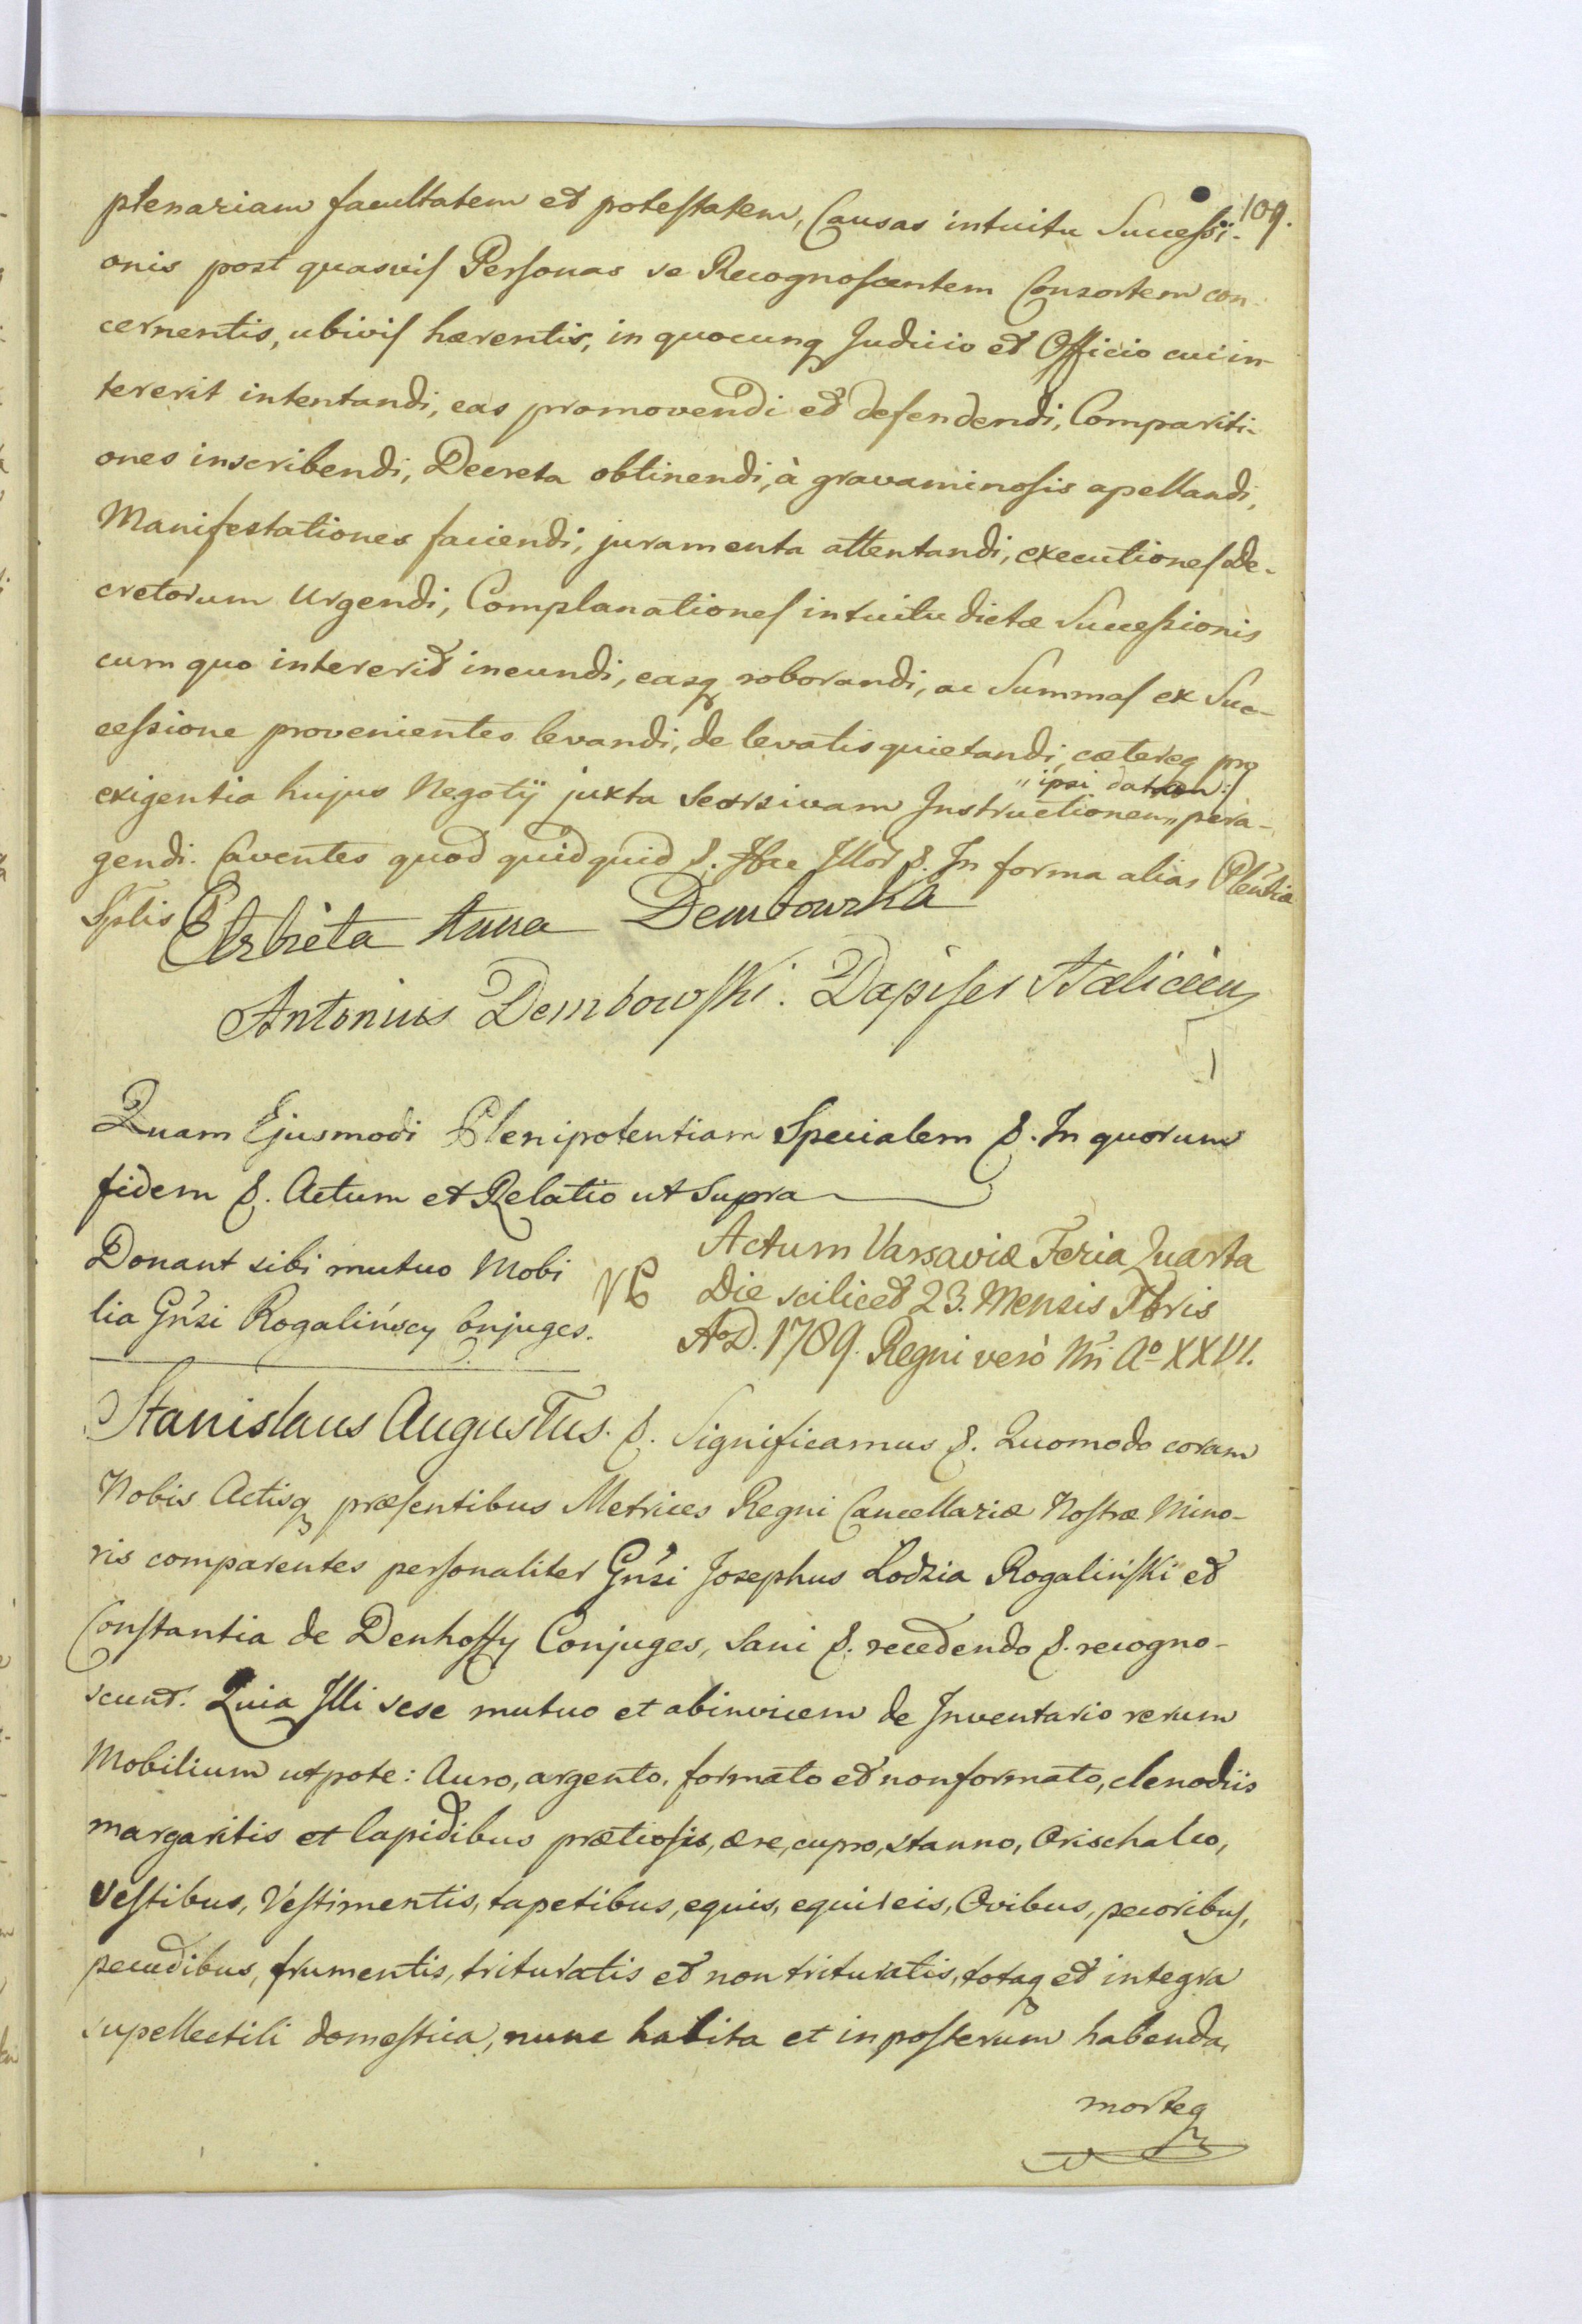 109.
plenariam facultatem et potestatem, Causas intuitu Successi-
onis post quasvis Personas se Recognoscentem Consortem con-
cernentis, ubivis hærentis, in quocunq Judicio et Officio cui in-
tererit intentandi, eas promovendi et defendendi, Compariti-
ones inscribendi, Decreta obtinendi, à gravaminosis apellandi,
Manifestationes faciendi, juramenta attentandi, executiones De-
cretorum Urgendi, Complanationes intuitu dictæ Successionis
cum quo intererit ineundi, easq roborandi, ac Summas ex Suc-
cessione provenientes levandi, de levatis quietandi, cæteraq pro
exigentia hujus Negotij juxta Seorsivam Instructionem pera-
ipsi datam
gendi. Caventes quod quidquid &. Hæc Illor &. In forma alias Plentiæ
Sptis Elzbieta Anna Dembowska
Antonius Dembowski. Dapifer Haliciens
Quam Ejusmodi Plenipotentiam Specialem &. In quorum
fidem &. Actum et Relatio ut Supra
Donant sibi mutuo Mobi
lia Gnsi Rogalińscy Conjuges.
Actum Varsaviæ Feria Quarta
Die scilicet 23. Mensis 7bris
AoD. 1789. Regni verò Nri Ao XXVI.
Stanislaus Augustus. &. Significamus &. Quomodo coram
Nobis Actisq præsentibus Metrices Regni Cancellariæ Nostræ Mino-
ris comparentes personaliter Gnsi Josephus Lodzia Rogaliński et
Constantia de Denhoffy Conjuges, Sani &. recedendo &. recogno-
scunt. Quia Illi sese mutuo et abinvicem de Inventario rerum
Mobilium utpote: Auro, argento, formato et non formato, clenodiis
margaritis et lapidibus prætiosis, ære, cupro, stanno, Orischalco,
Vestibus, Vestimentis, tapetibus, equis, equireis, Ovibus, pecoribus,
pecudibus, frumentis, trituratis et non trituratis, totaq et integra
supellectili domestica, nunc habita et inposterum habenda,
morteq